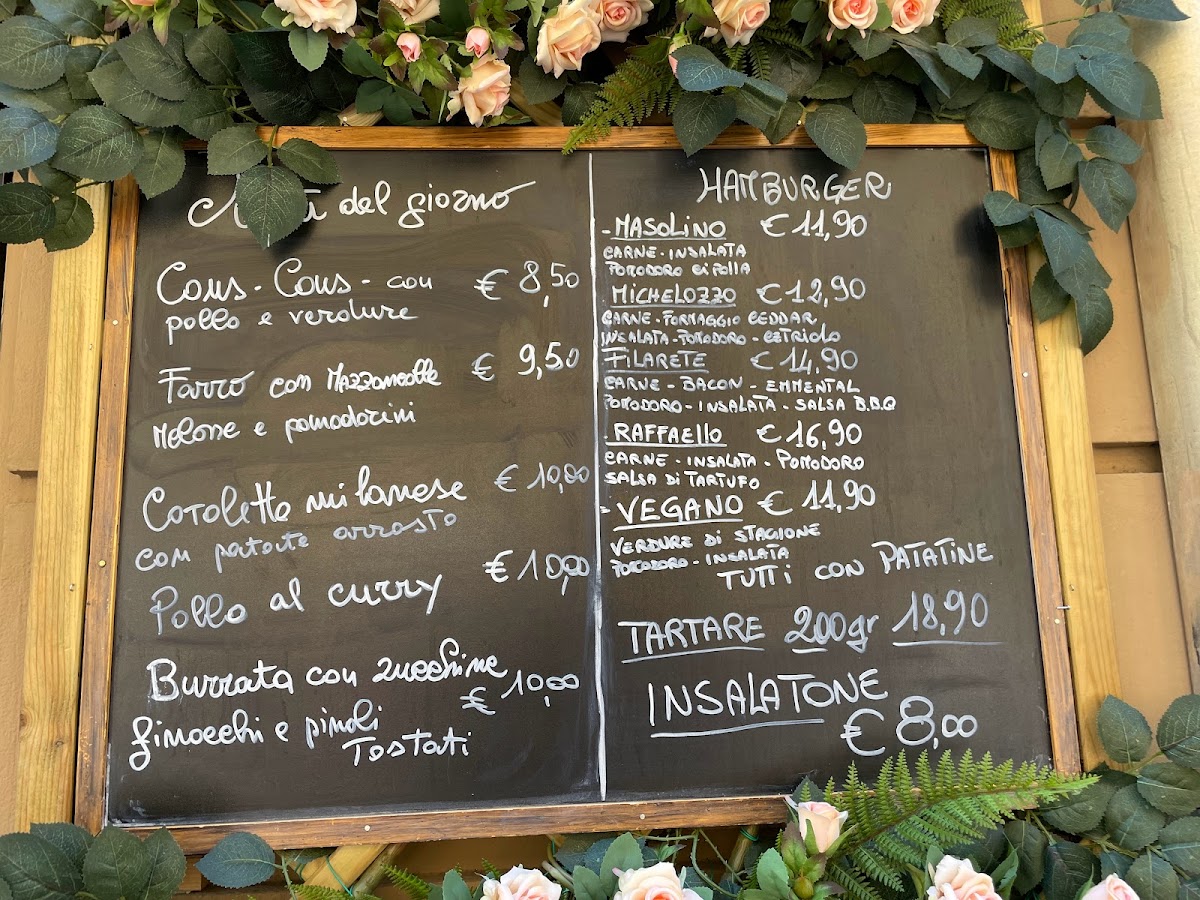 del giorno
Cous - Cous - con € 8,50
pollo e verdure
Farro con Mazzancolle € 9,50
Melone e pomodorini
Cotolette milanese € 10,00
con patate arrosto
Pollo al curry € 10,00
Burrata con zucchine € 10,00
finocchi e pinoli
Tostati
HAMBURGER
- MASOLINO € 11,90
CARNE - INSALATA
POMODORO CIPOLLA
MICHELOZZO € 12,90
CARNE - FORMAGGIO CEDDAR
INSALATA - POMODORO - CETRIOLO
FILARETE € 14,90
CARNE - BACON - EMMENTAL
POMODORO - INSALATA - SALSA B.B.Q
RAFFAELLO € 16,90
CARNE - INSALATA - POMODORO
SALSA DI TARTUFO
- VEGANO € 11,90
VERDURE DI STAGIONE
POMODORO - INSALATA
TUTTI CON PATATINE
TARTARE 200gr 18,90
INSALATONE
€ 8,00